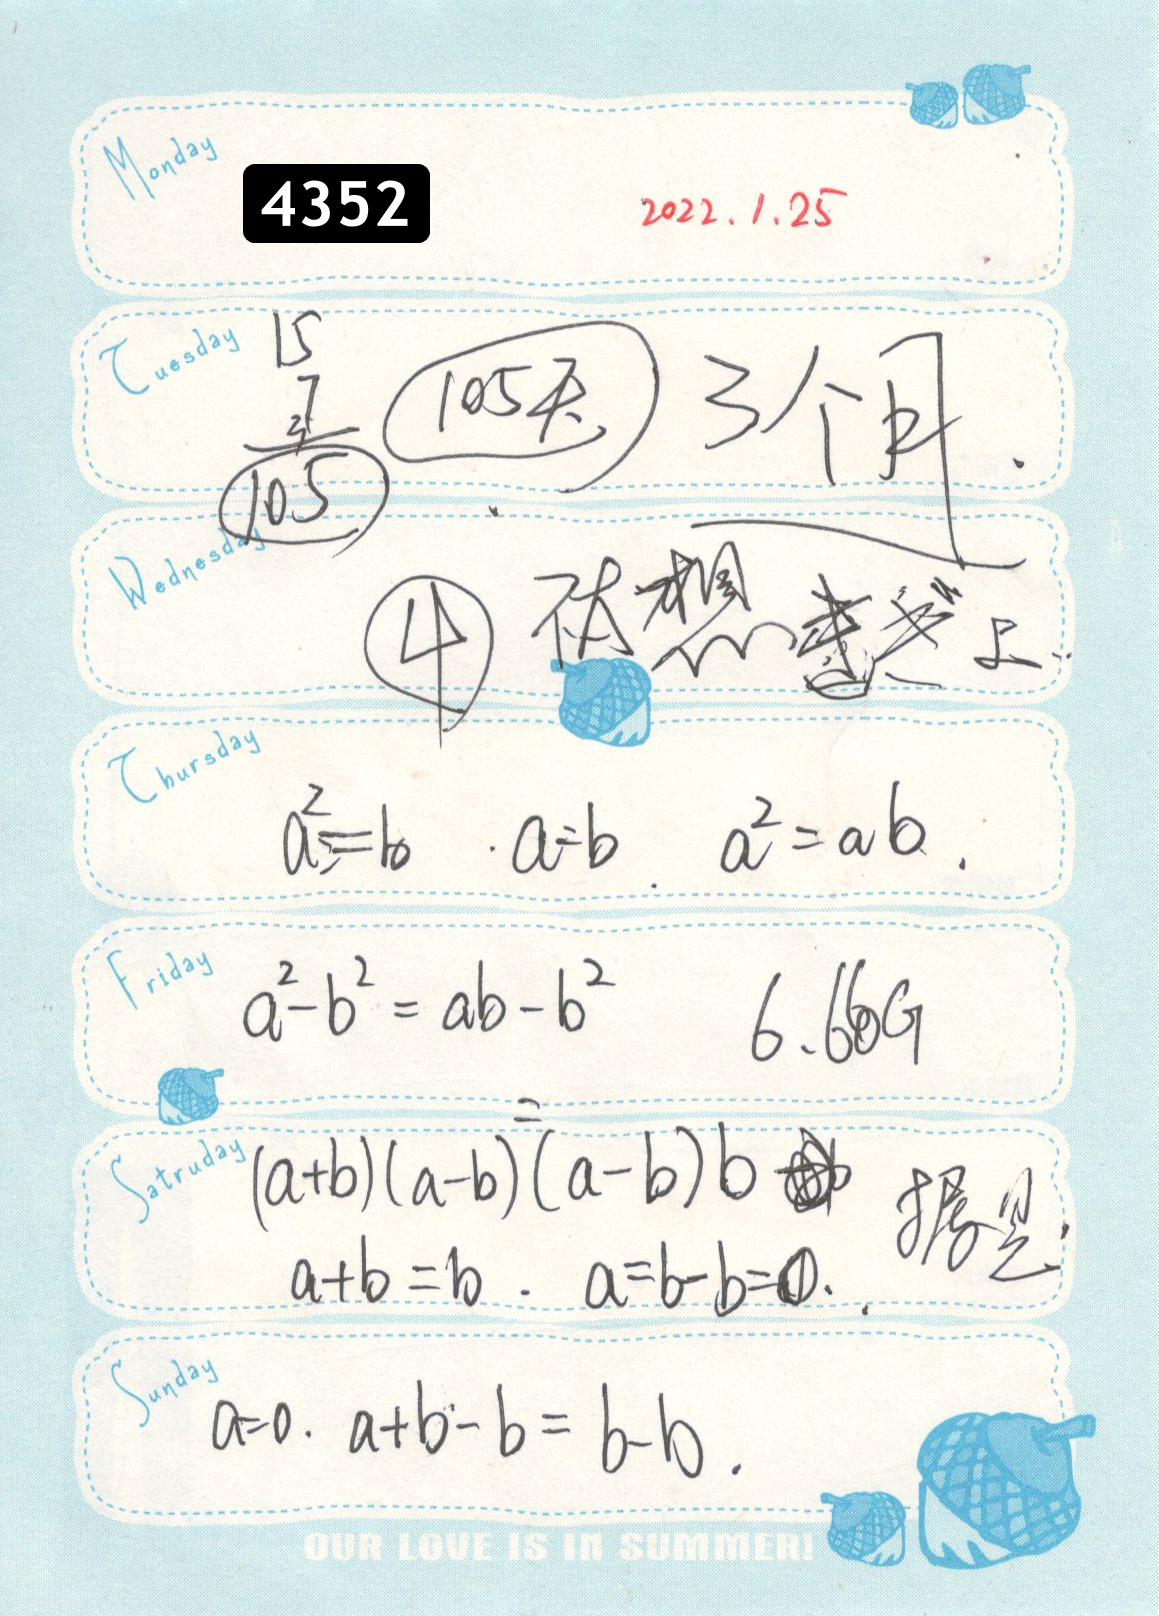 Monday
4352 2022.1.25
Tuesday
15
7
105天 3个月.
105
Wednesday
④ 依想
Thursday
a²=b . a=b . a²=ab .
Friday
a²-b² = ab-b² 6.66G
=
Satruday
(a+b)(a-b) (a-b)b
a+b=b . a=b-b=0.
Sunday
a=0. a+b-b= b-b .
OUR LOVE IS IN SUMMER!